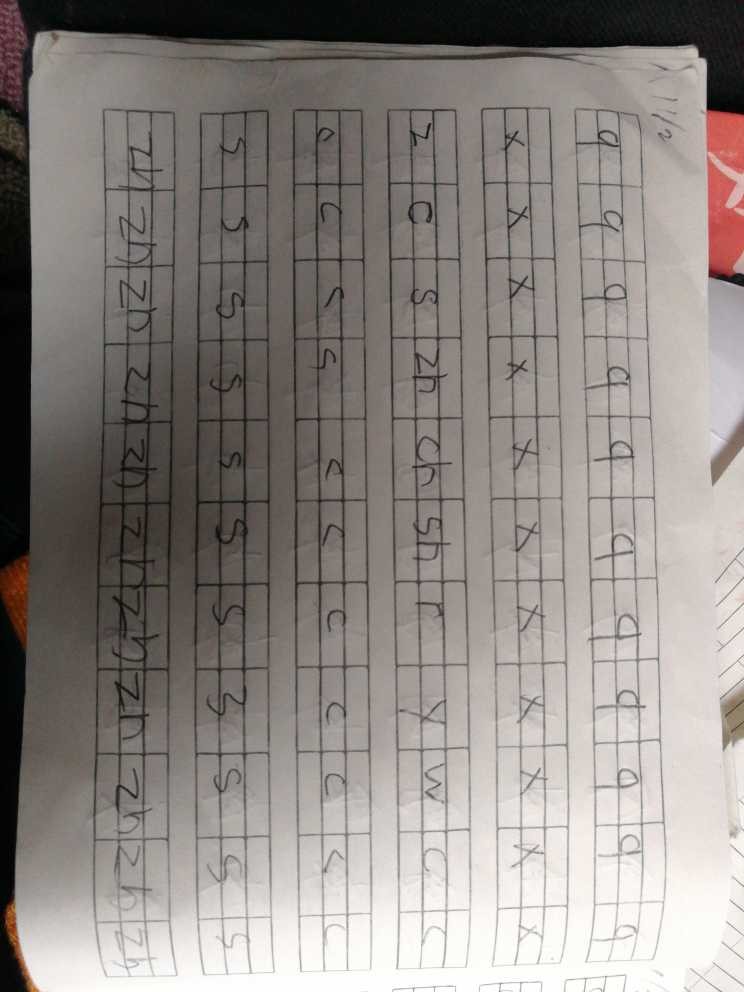 q q q q q q q q q q q
x x x x x x x x x x x
z c s zh ch sh r y w c c
c c c s c c c c c c c
s s s s s s s 3 s s s
zh zh zh zh zh zh zh zh zh zh zh